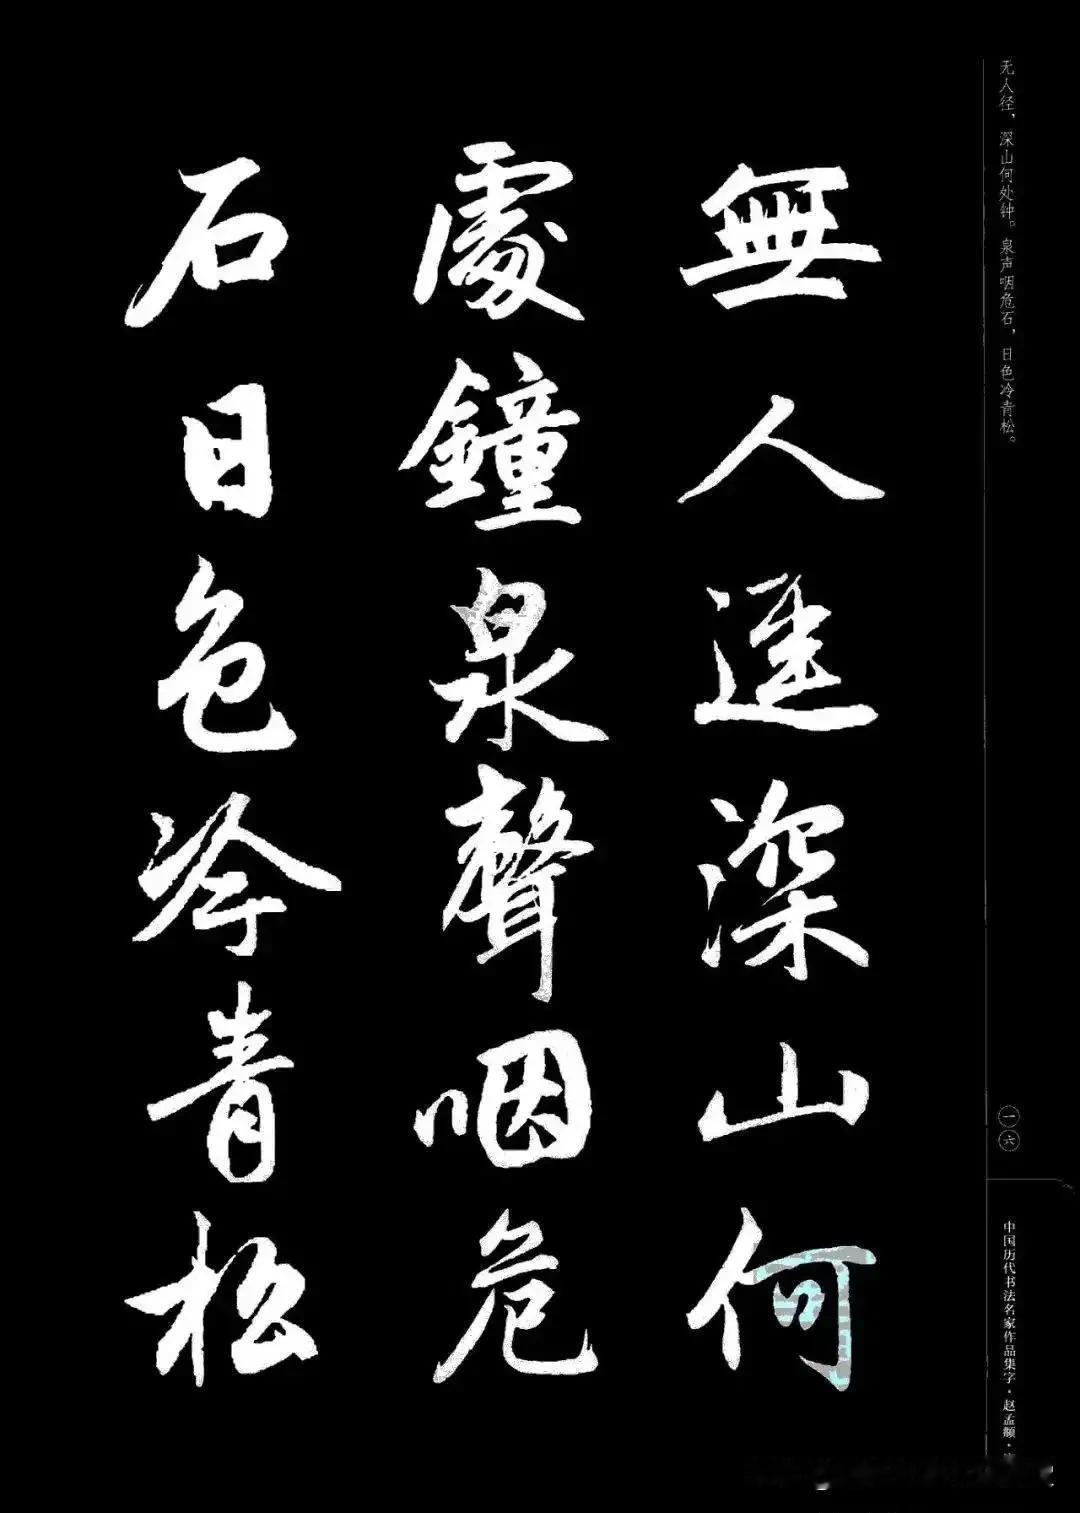 无人径，深山何处钟。泉声咽危石，日色冷青松。
無人逕深山何
處鐘泉聲咽危
石日色冷青松
一六
中国历代书法名家作品集字·赵孟頫·